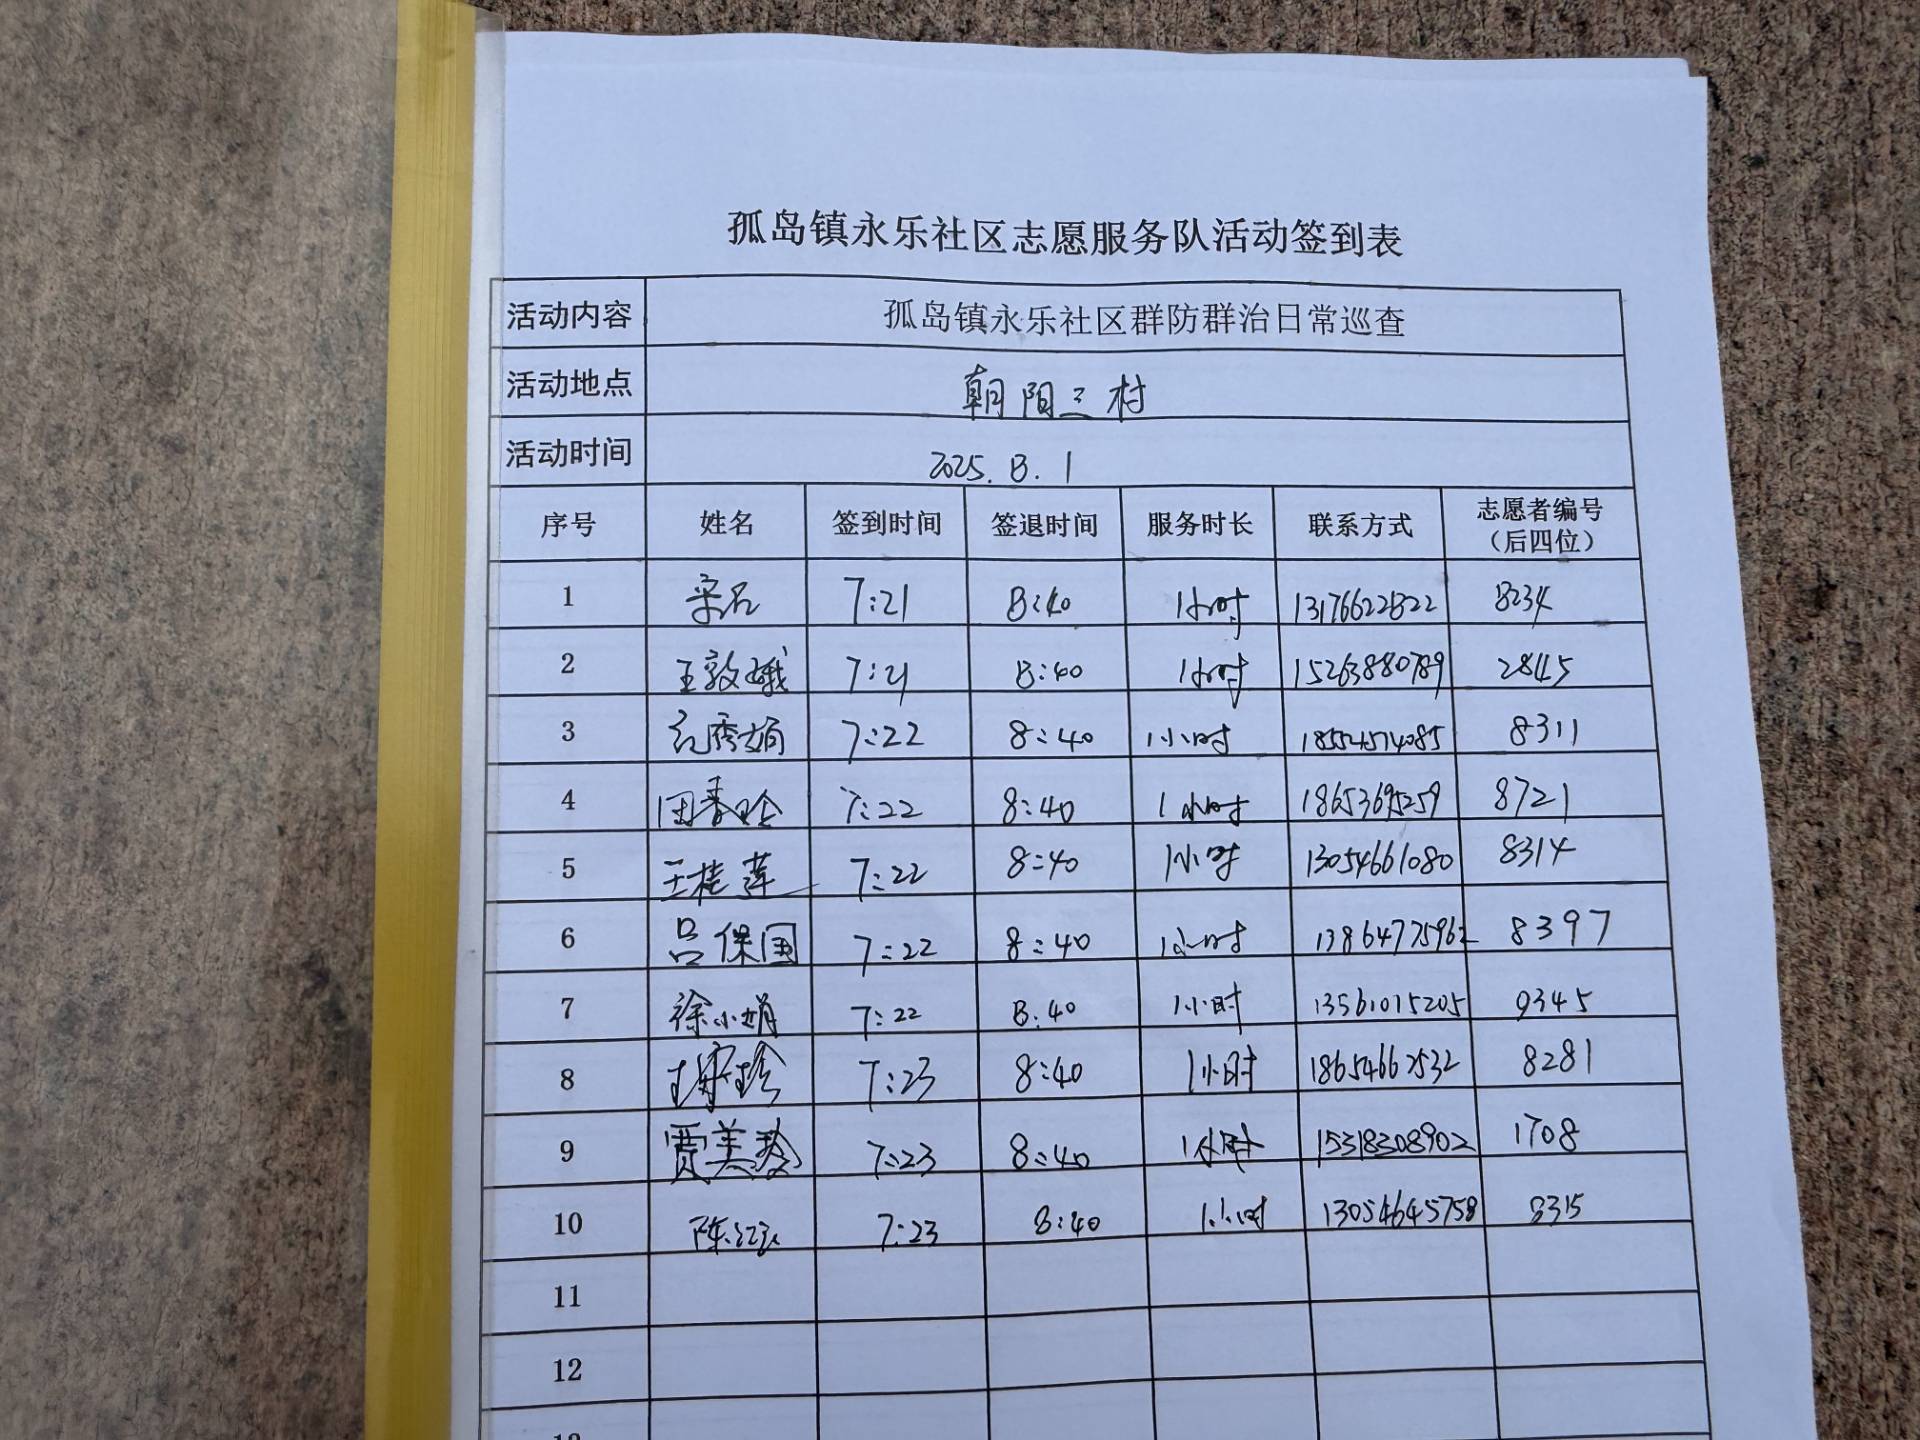 孤岛镇永乐社区志愿服务队活动签到表
活动内容 孤岛镇永乐社区群防群治日常巡查
活动地点 朝阳三村
活动时间 2025.8.1
序号 姓名 签到时间 签退时间 服务时长 联系方式 志愿者编号（后四位）
1 7:21 8:40 1小时 13176622822 8234
2 王敦娥 7:21 8:40 1小时 15263880789 2845
3 纪秀娟 7:22 8:40 1小时 18554514085 8311
4 田春玲 7:22 8:40 1小时 18653695259 8721
5 王桂莲 7:22 8:40 1小时 13054661080 8314
6 吕保国 7:22 8:40 1小时 13864775962 8397
7 徐小娟 7:22 8:40 1小时 13561015205 9345
8 7:23 8:40 1小时 18654662532 8281
9 贾美 7:23 8:40 1小时 15318308902 1708
10 陈 7:23 8:40 1小时 13054645758 8315
11
12